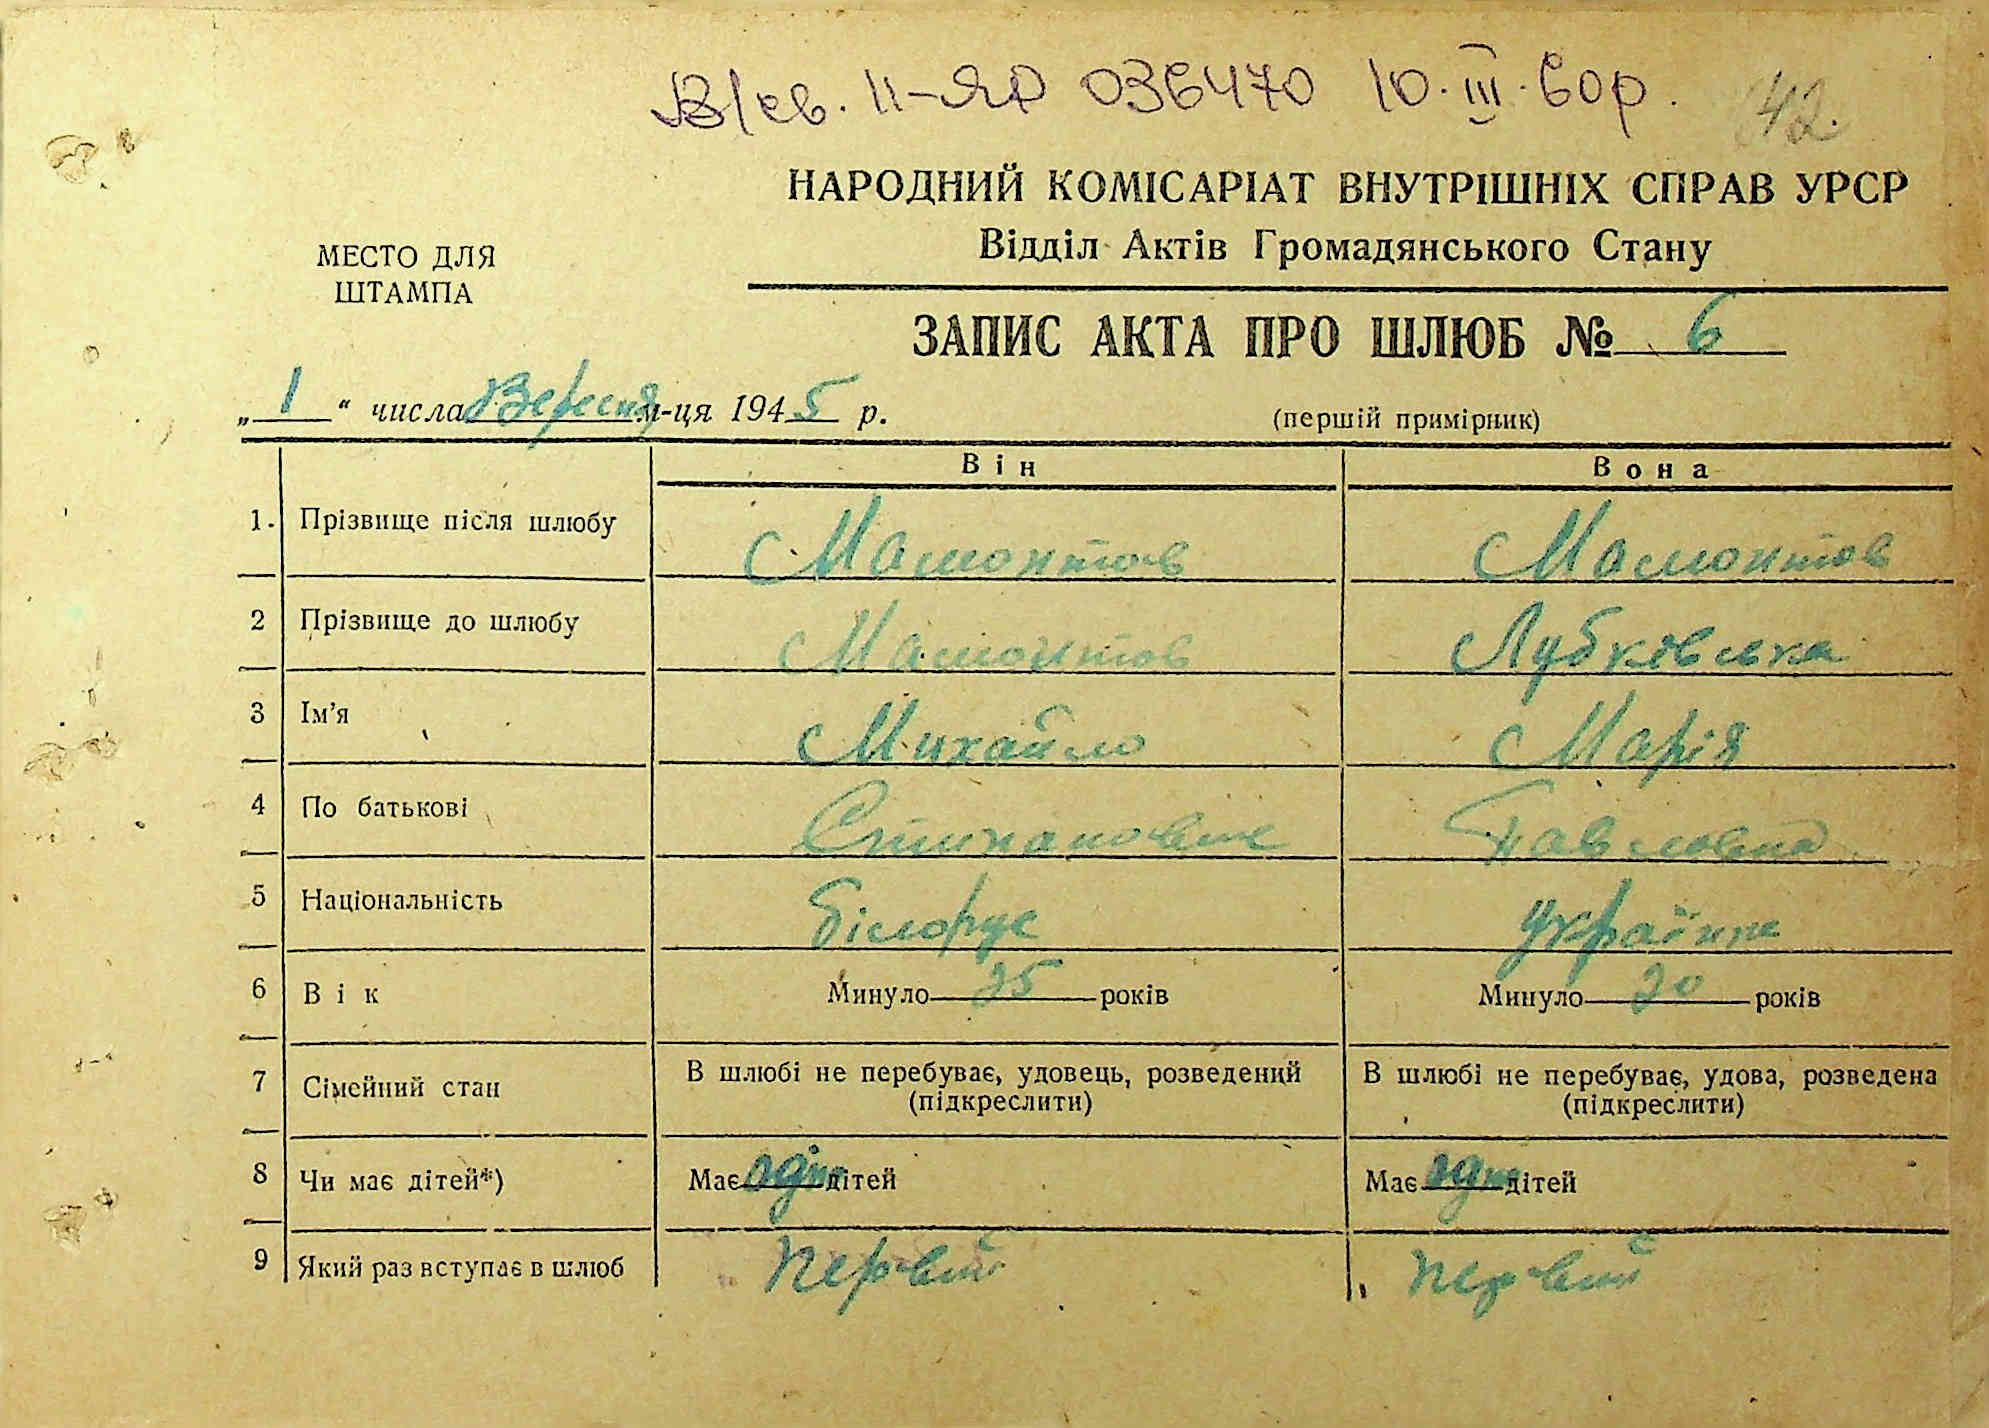 В/св. II-ЯР 036470 10.III.60р. 42.
НАРОДНИЙ КОМІСАРІАТ ВНУТРІШНІХ СПРАВ УРСР
Відділ Актів Громадянського Стану
МЕСТО ДЛЯ
ШТАМПА
ЗАПИС АКТА ПРО ШЛЮБ № 6
„1“ числа Вересня м-ця 1945 р.
(першій примірник)
Він Вона
1. Прізвище після шлюбу Мамонтов Мамонтов
2 Прізвище до шлюбу Мамонтов Лубківська
3 Ім’я Михайло Марія
4 По батькові Степанович Павловна
5 Національність білорус українка
6 Вік Минуло 25 років Минуло 20 років
7 Сімейний стан В шлюбі не перебуває, удовець, розведений В шлюбі не перебуває, удова, розведена
(підкреслити) (підкреслити)
8 Чи має дітей*) Має дітей Має дітей
9 Який раз вступає в шлюб первий первий